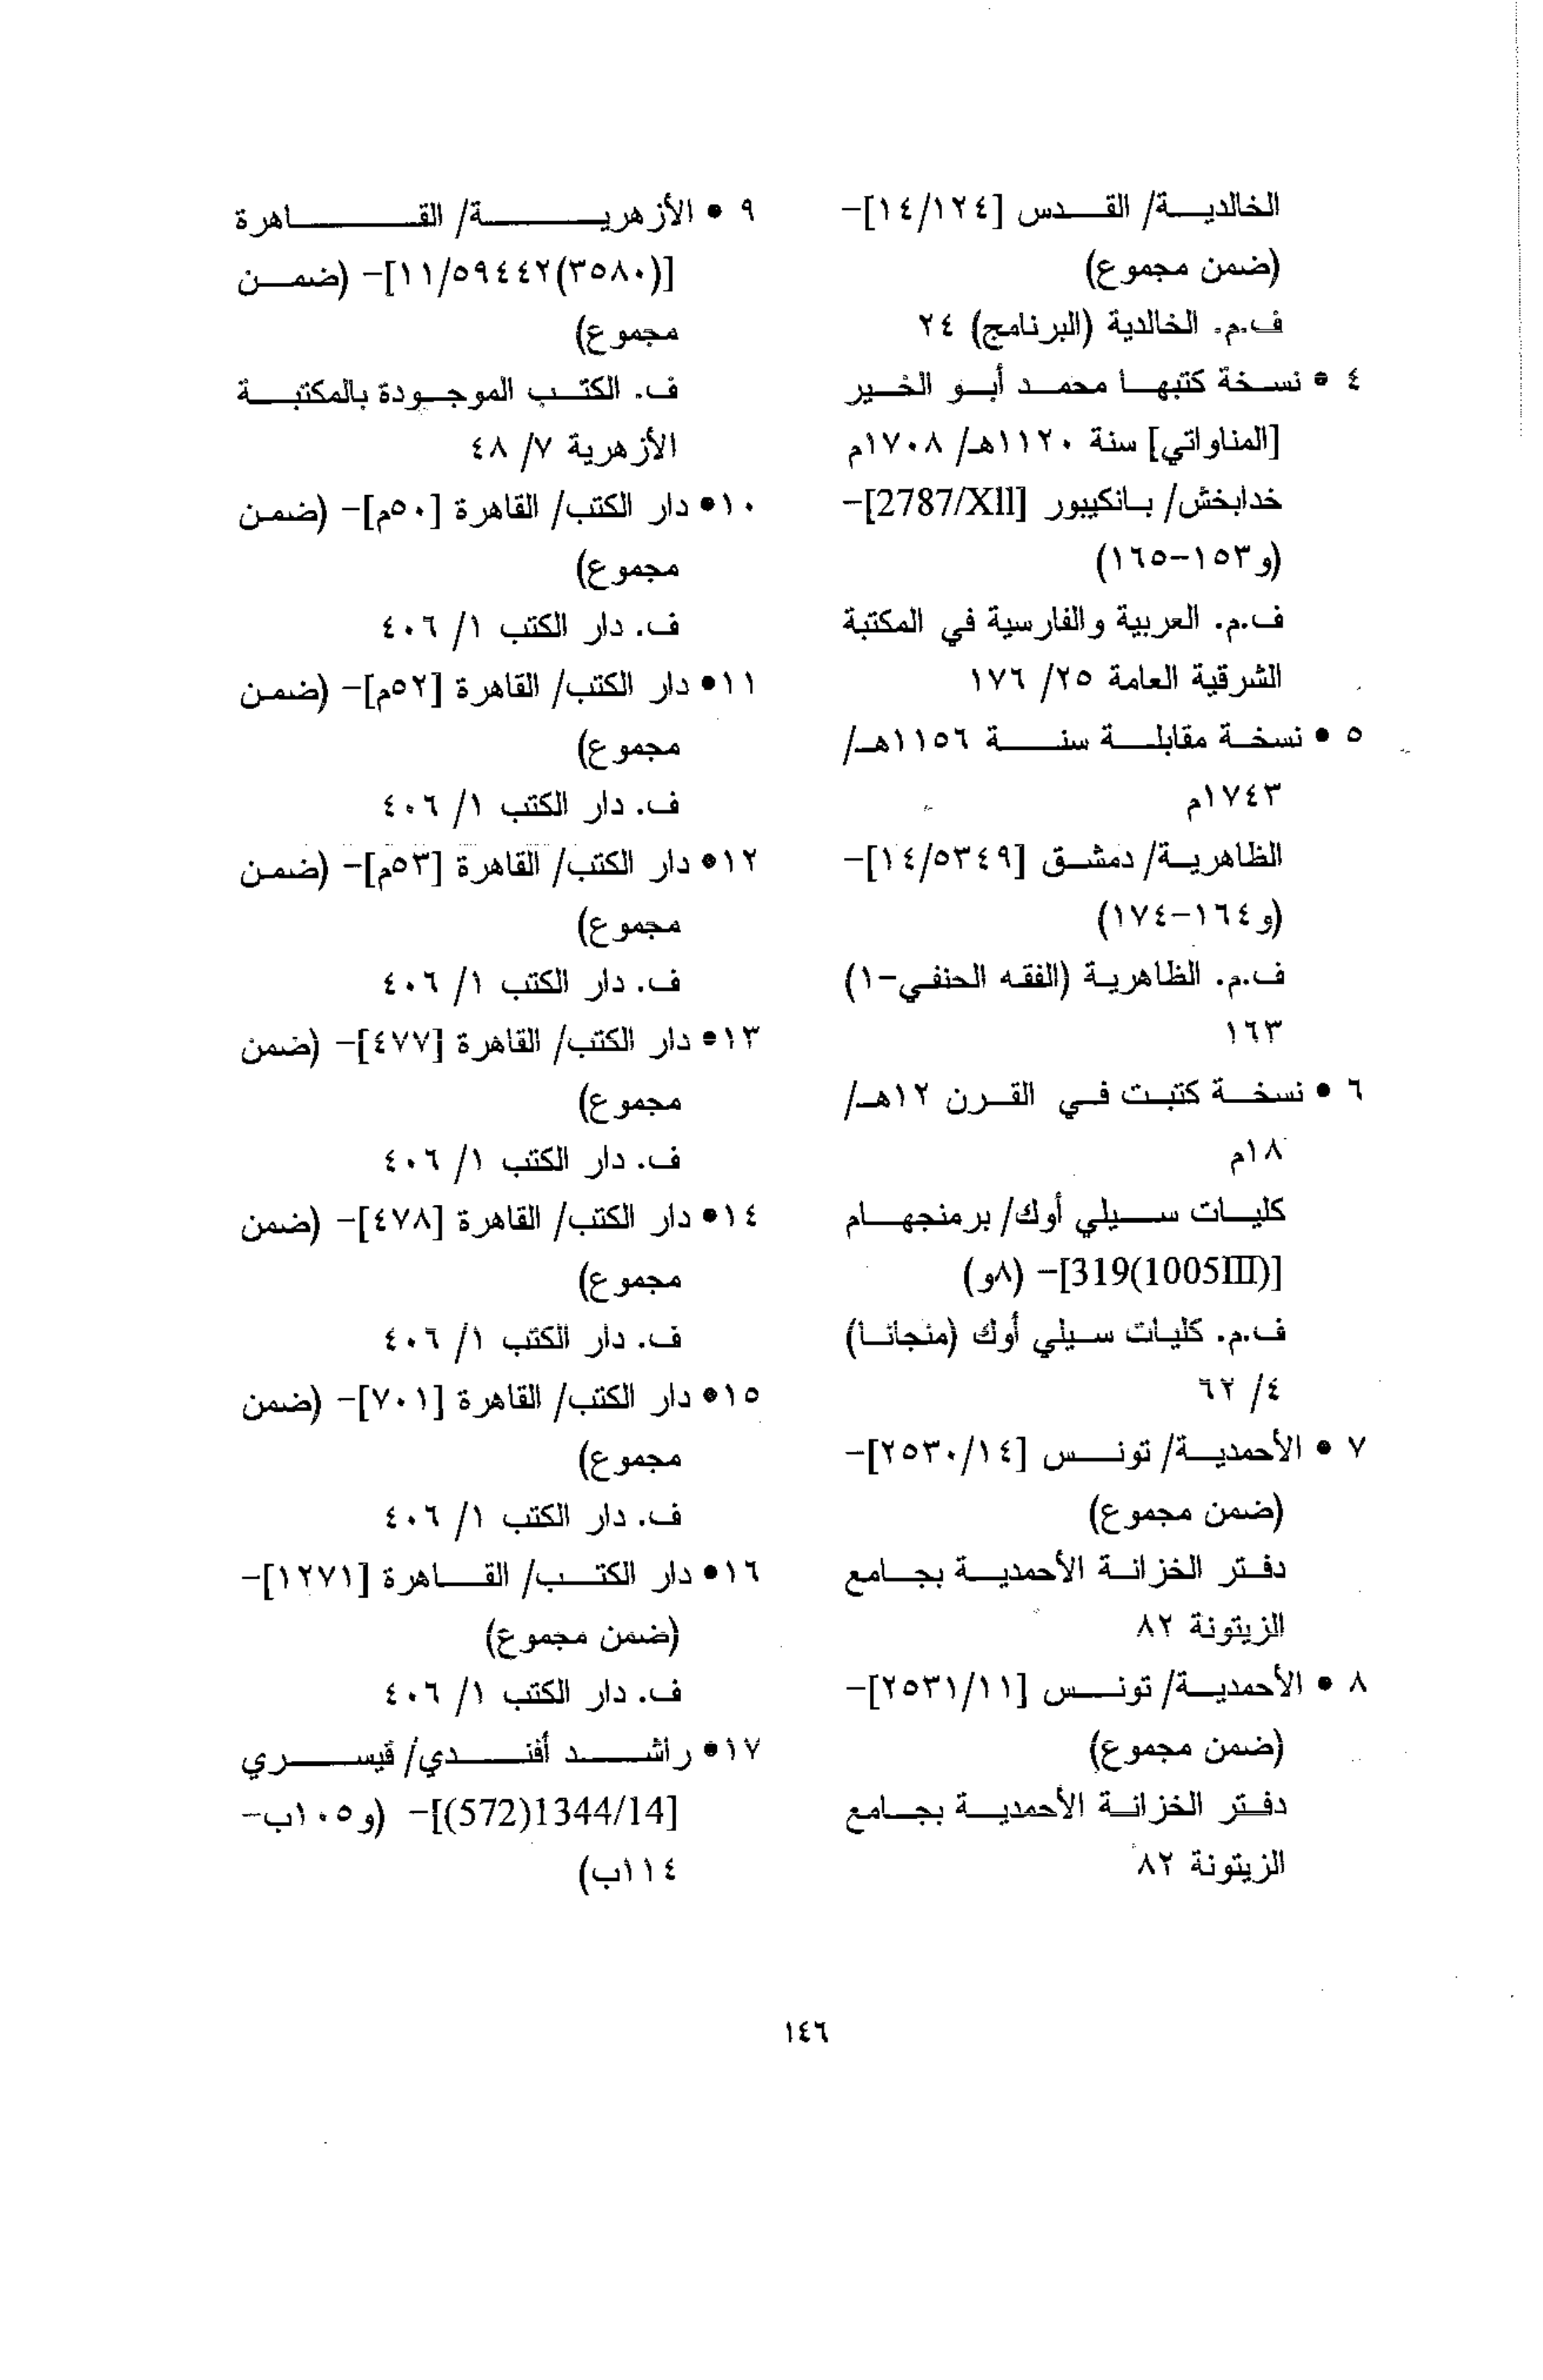 الخالدية/ القدس [١٤/١٢٤]-
(ضمن مجموع)
ف.م. الخالدية (البرنامج) ٢٤
٤ • نسخة كتبها محمد أبو الخير
[المناواتي] سنة ١١٢٠هـ/ ١٧٠٨م
خدابخش/ بانكيبور [2787/Xll]-
(و١٥٣-١٦٥)
ف.م. العربية والفارسية في المكتبة
الشرقية العامة ٢٥/ ١٧٦
٥ • نسخة مقابلة سنة ١١٥٦هـ/
١٧٤٣م
الظاهرية/ دمشق [١٤/٥٣٤٩]-
(و١٦٤-١٧٤)
ف.م. الظاهرية (الفقه الحنفي-١)
١٦٣
٦ • نسخة كتبت في القرن ١٢هـ/
١٨م
كليات سيلي أوك/ برمنجهام
[319(1005III)]- (٨و)
ف.م. كليات سيلي أوك (منجانا)
٤/ ٦٢
٧ • الأحمدية/ تونس [٢٥٣٠/١٤]-
(ضمن مجموع)
دفتر الخزانة الأحمدية بجامع
الزيتونة ٨٢
٨ • الأحمدية/ تونس [٢٥٣١/١١]-
(ضمن مجموع)
دفتر الخزانة الأحمدية بجامع
الزيتونة ٨٢
٩ • الأزهرية/ القاهرة
[(٣٥٨٠)١١/٥٩٤٤٢]- (ضمن
مجموع)
ف. الكتب الموجودة بالمكتبة
الأزهرية ٧/ ٤٨
١٠• دار الكتب/ القاهرة [٥٠م]- (ضمن
مجموع)
ف. دار الكتب ١/ ٤٠٦
١١• دار الكتب/ القاهرة [٥٢م]- (ضمن
مجموع)
ف. دار الكتب ١/ ٤٠٦
١٢• دار الكتب/ القاهرة [٥٣م]- (ضمن
مجموع)
ف. دار الكتب ١/ ٤٠٦
١٣• دار الكتب/ القاهرة [٤٧٧]- (ضمن
مجموع)
ف. دار الكتب ١/ ٤٠٦
١٤• دار الكتب/ القاهرة [٤٧٨]- (ضمن
مجموع)
ف. دار الكتب ١/ ٤٠٦
١٥• دار الكتب/ القاهرة [٧٠١]- (ضمن
مجموع)
ف. دار الكتب ١/ ٤٠٦
١٦• دار الكتب/ القاهرة [١٢٧١]-
(ضمن مجموع)
ف. دار الكتب ١/ ٤٠٦
١٧• راشد أفندي/ قيسري
[(572)1344/14]- (و١٠٥ب-
١١٤ب)
١٤٦